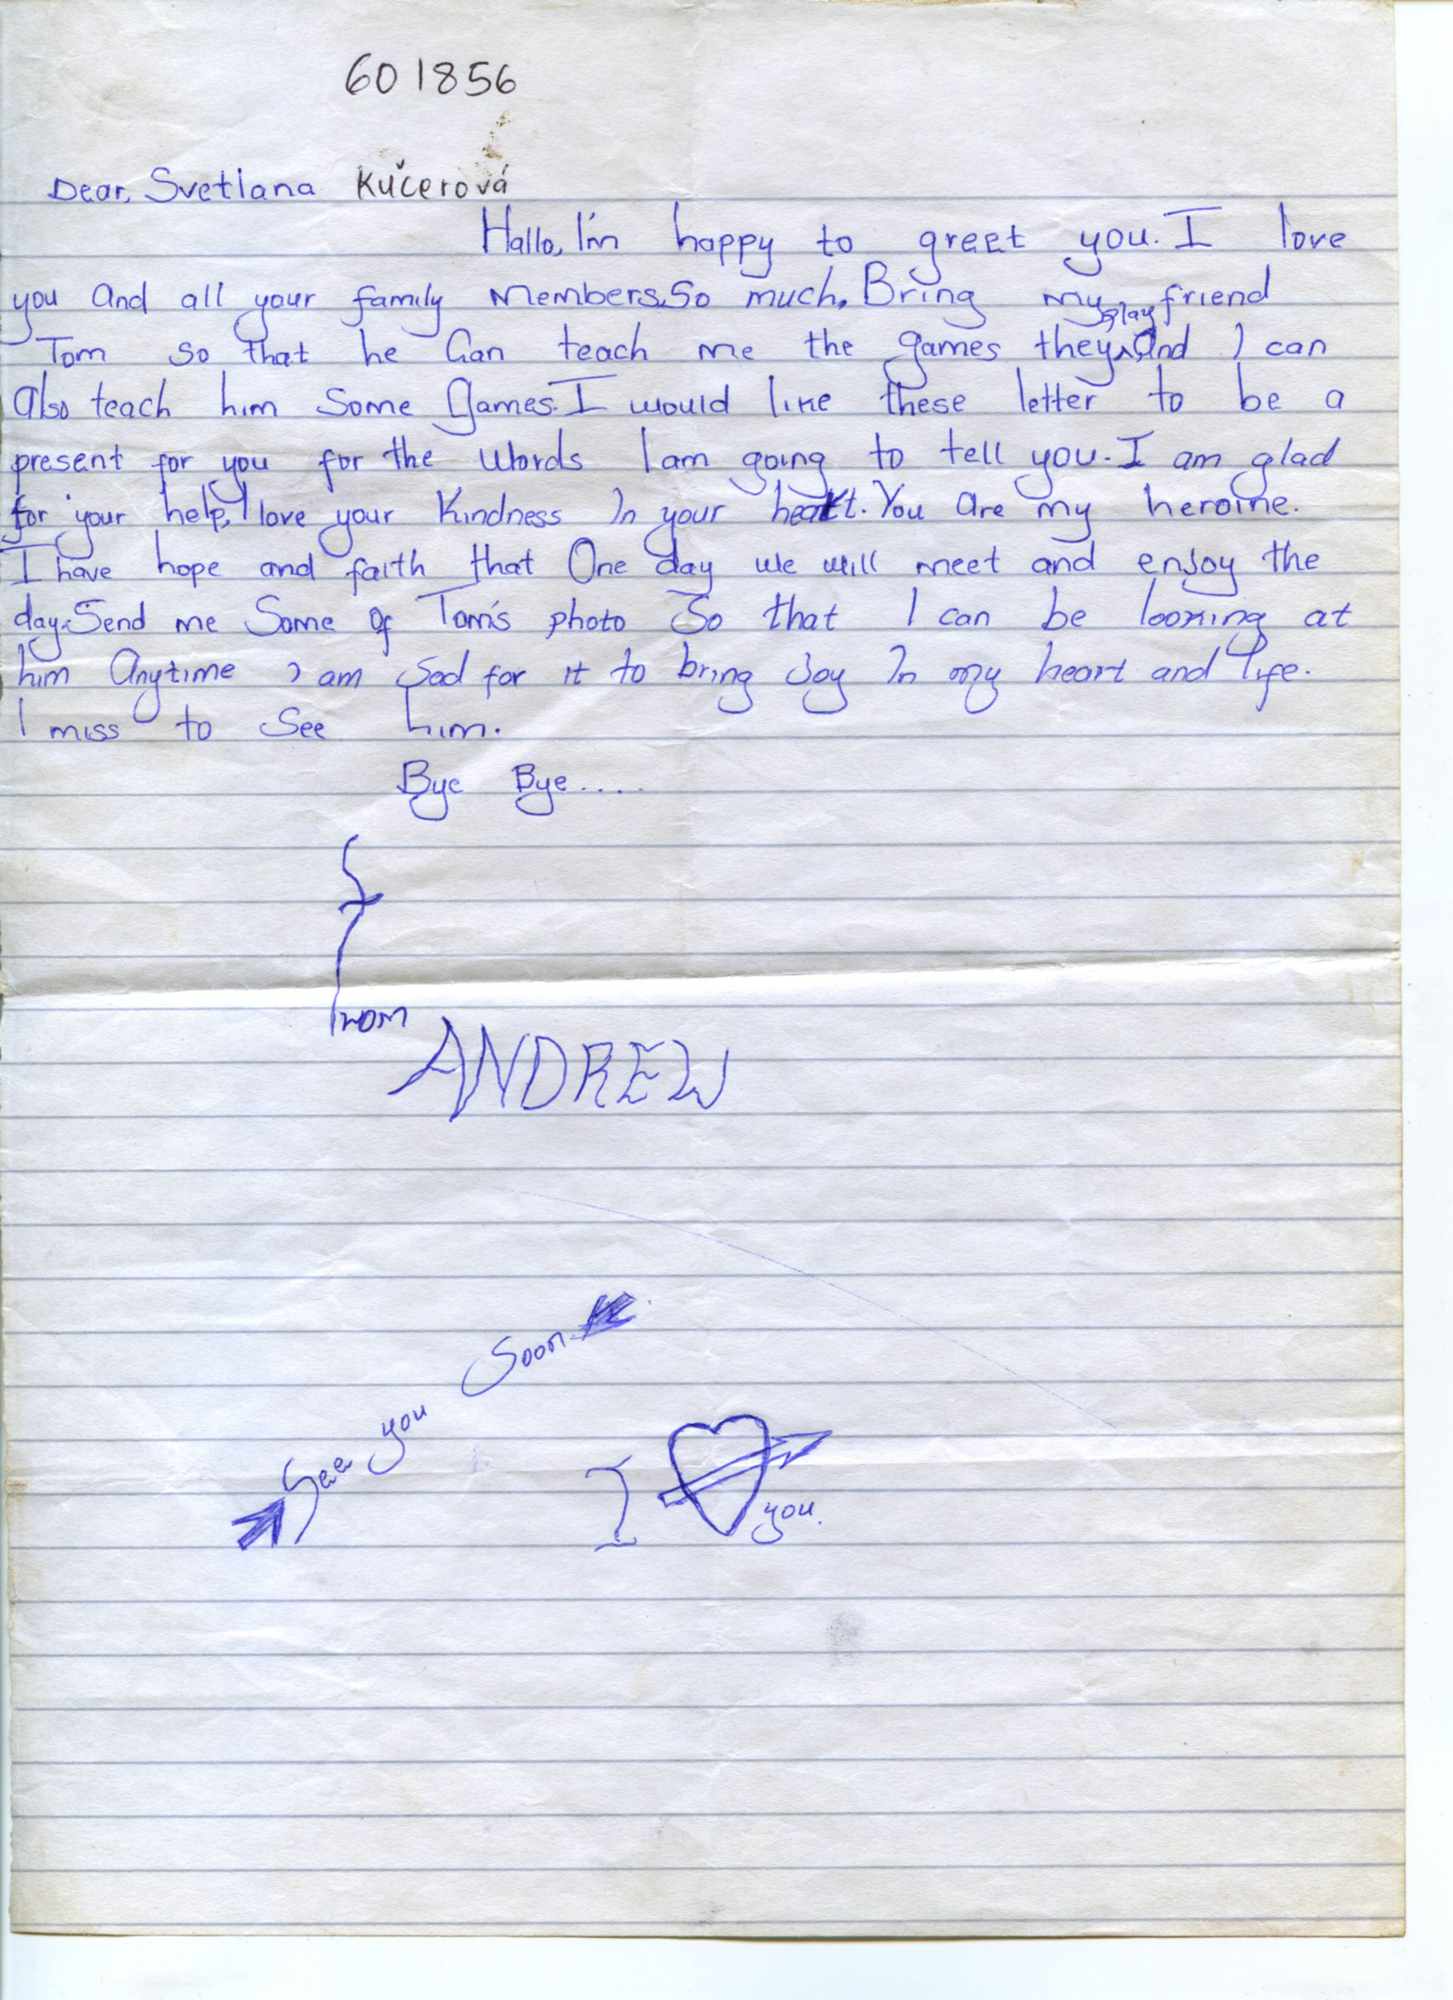 601856
Dear, Svetlana Kučerová
Hallo, I'm happy to greet you. I love
you And all your family Members. So much. Bring my friend
Tom so that he Can teach me the games they play And I can
Also teach him Some Games. I would like these letter to be a
present for you for the Words I am going to tell you. I am glad
for your help, I love your Kindness In your heart. You Are my heroine.
I have hope and faith that One day we will meet and enjoy the
day. Send me Some Of Tom's photo So that I can be looking at
him Anytime I am Sad for it to bring Joy In my heart and life.
I miss to See him.
Bye Bye....
From
ANDREW
See you Soon
I you.